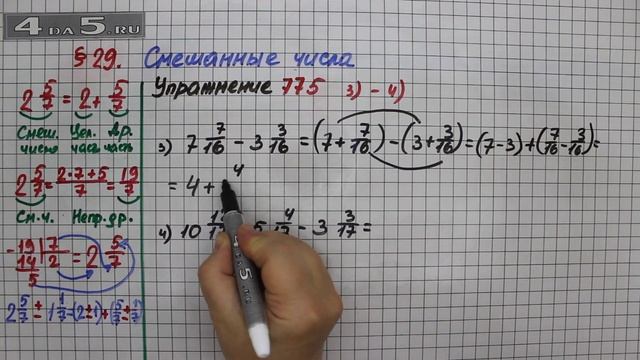 4 DA 5 .RU
§ 29. Смешанные числа
Упражнение 775 3) - 4)
2 5/7 = 2 + 5/7
Смеш. Цел. Др.
число часть часть
2 5/7 = 2·7+5/7 = 19/7
См.ч. Непр.др.
-19 | 7
14 | 2 = 2 5/7
5
2 5/7 ± 1 1/7 = (2±1)+(5/7±1/7)
3) 7 7/16 - 3 3/16 = (7 + 7/16) - (3 + 3/16) = (7 - 3) + (7/16 - 3/16) =
= 4 + 4
4) 10 5 4/17 - 3 3/17 =
4 DA 5